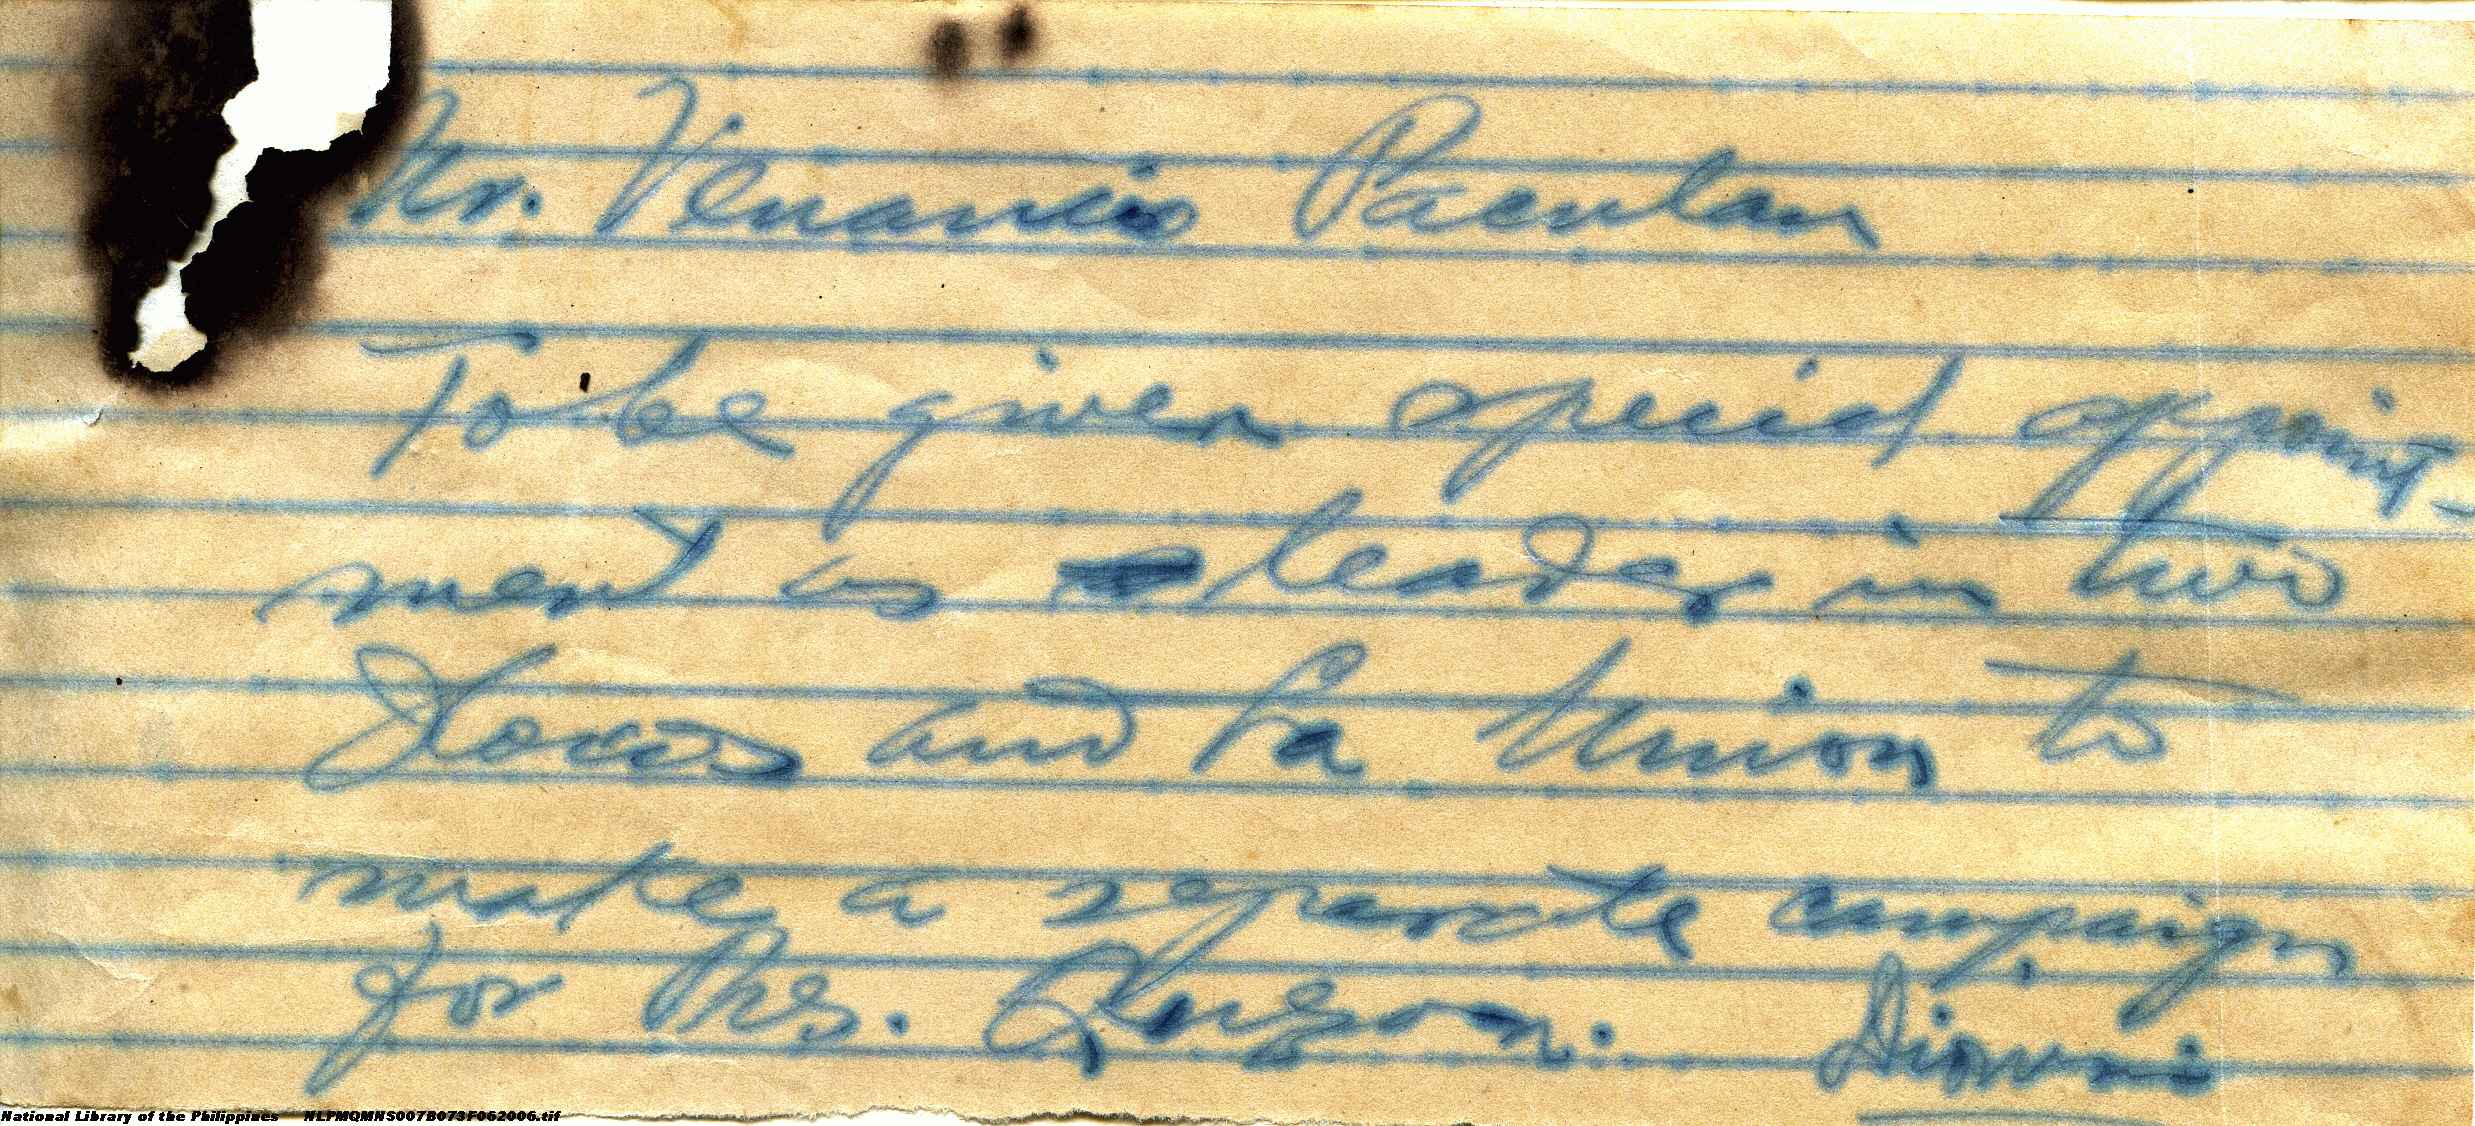 Mr. Venancio Pacultan
To be given special appoint-
ment as leader in two
Ilocos and La Union to
make a separate campaign
for Pres. Quezon.
National Library of the Philippines NLPMQMNS007B073F062006.tif